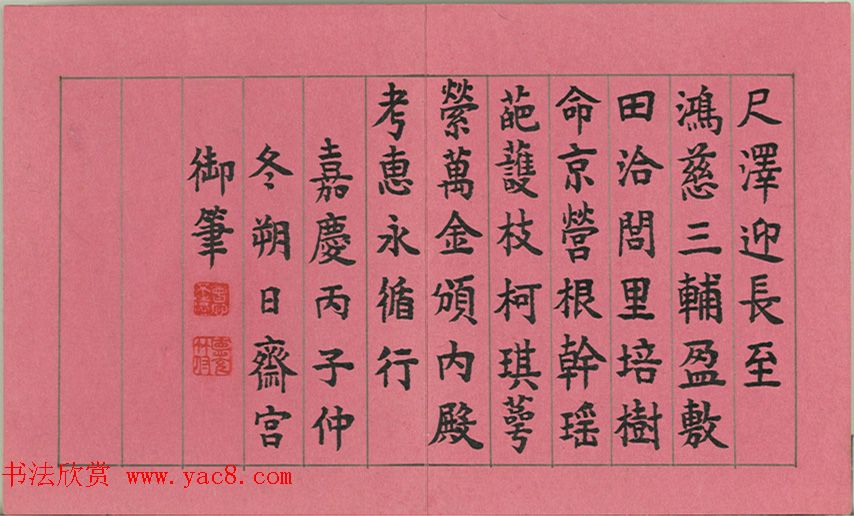 尺澤迎長至
鴻慈三輔盈敷
田洽閭里培樹
命京營根幹瑶
葩䕶枝柯琪蕚
縈萬金頒内殿
考惠永循行
嘉慶丙子仲
冬朔日齋宫
御筆
书法欣赏 www.yac8.com